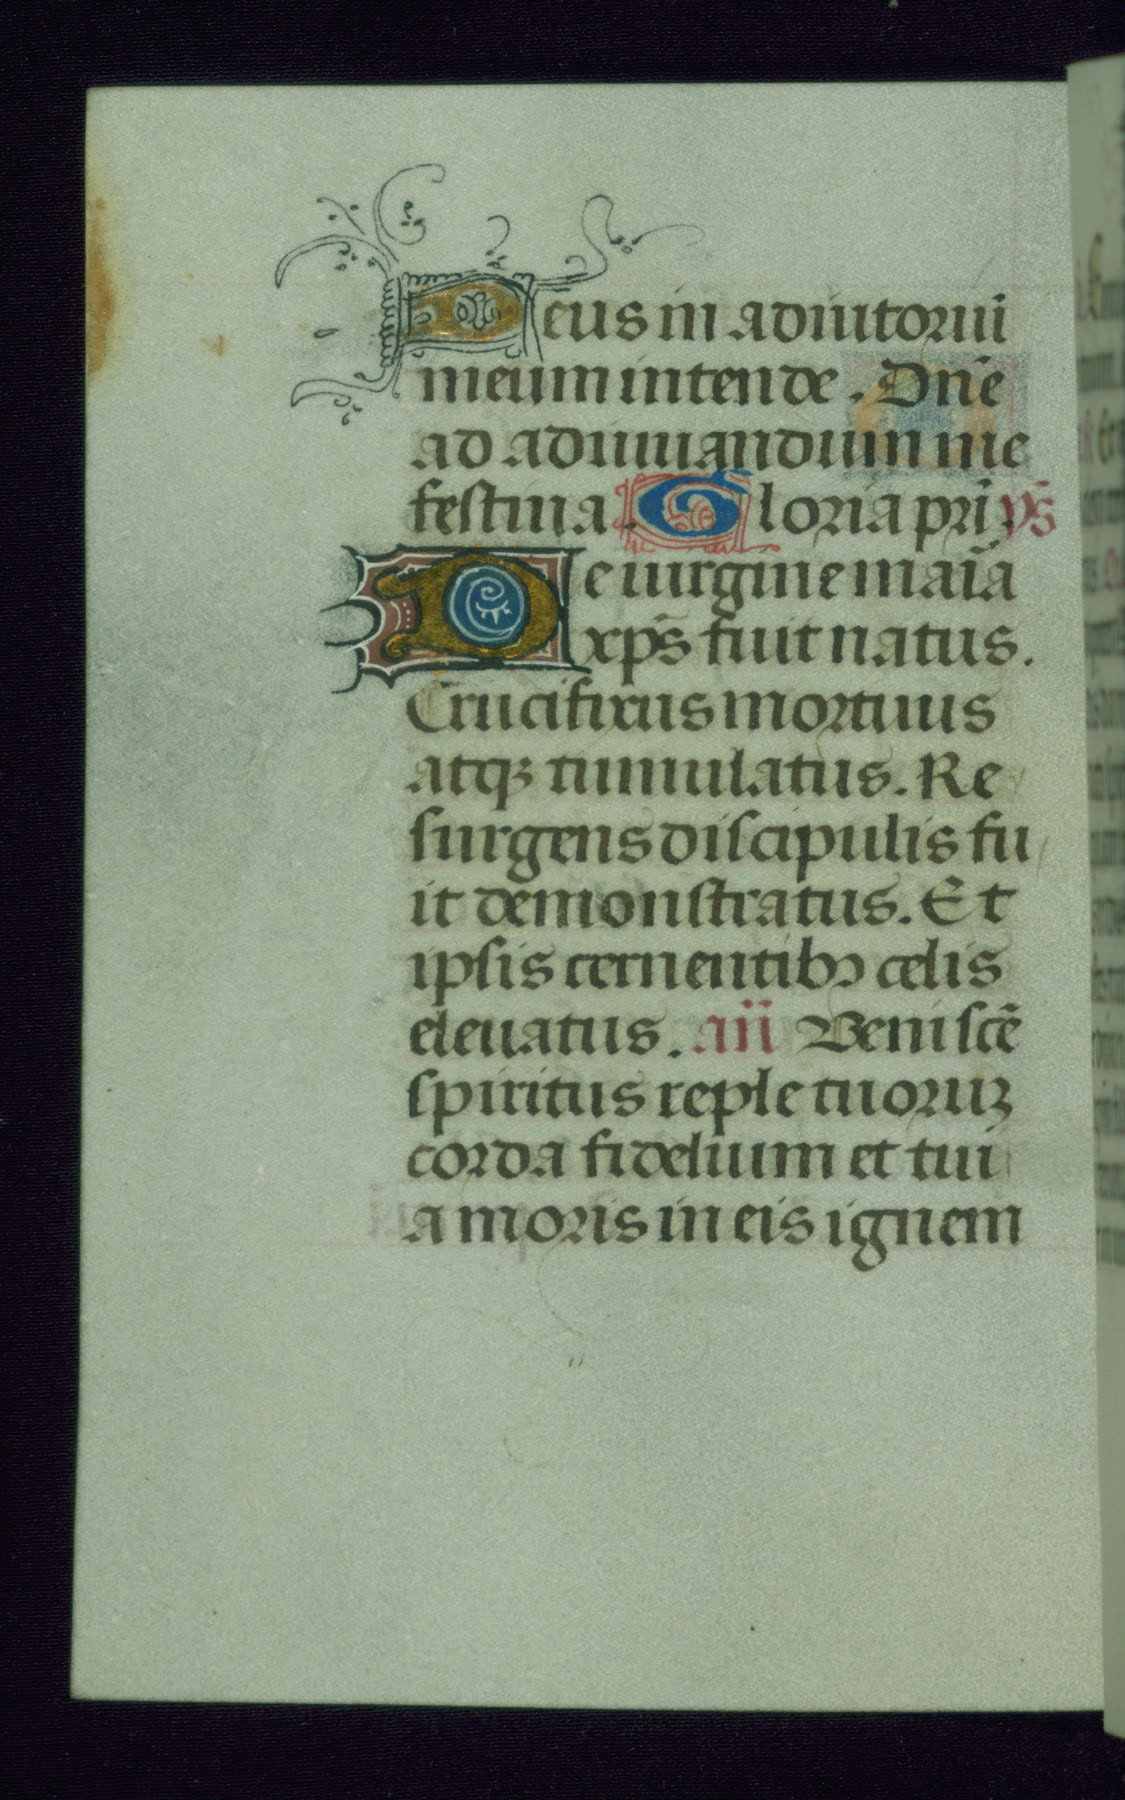 Deus in adiutoriū
meum intende. Dn̄e
ad adiuuandum me
festina. Gloria pri. ys̄
De uirgine maīa
xp̄s fuit natus.
Crucifixus mortuus
atqꝫ tumulatus. Re
surgens discipulis fu
it demonstratus. Et
ipsis cernentibꝯ celis
eleuatus. an̄ Veni scē
spiritus reple tuoruꝫ
corda fidelium et tui
amoris in eis ignem